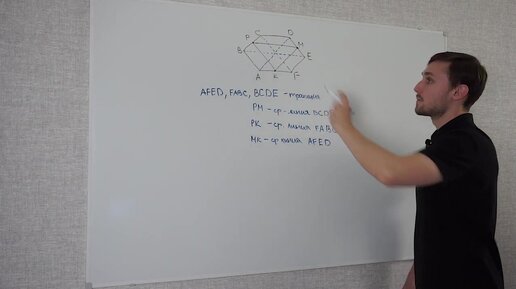 C D
P M
B E
A K F
AFED, FABC, BCDE - трапеции
PM - ср. линия BCDE
PK - ср. линия FABC
MK - ср. линия AFED